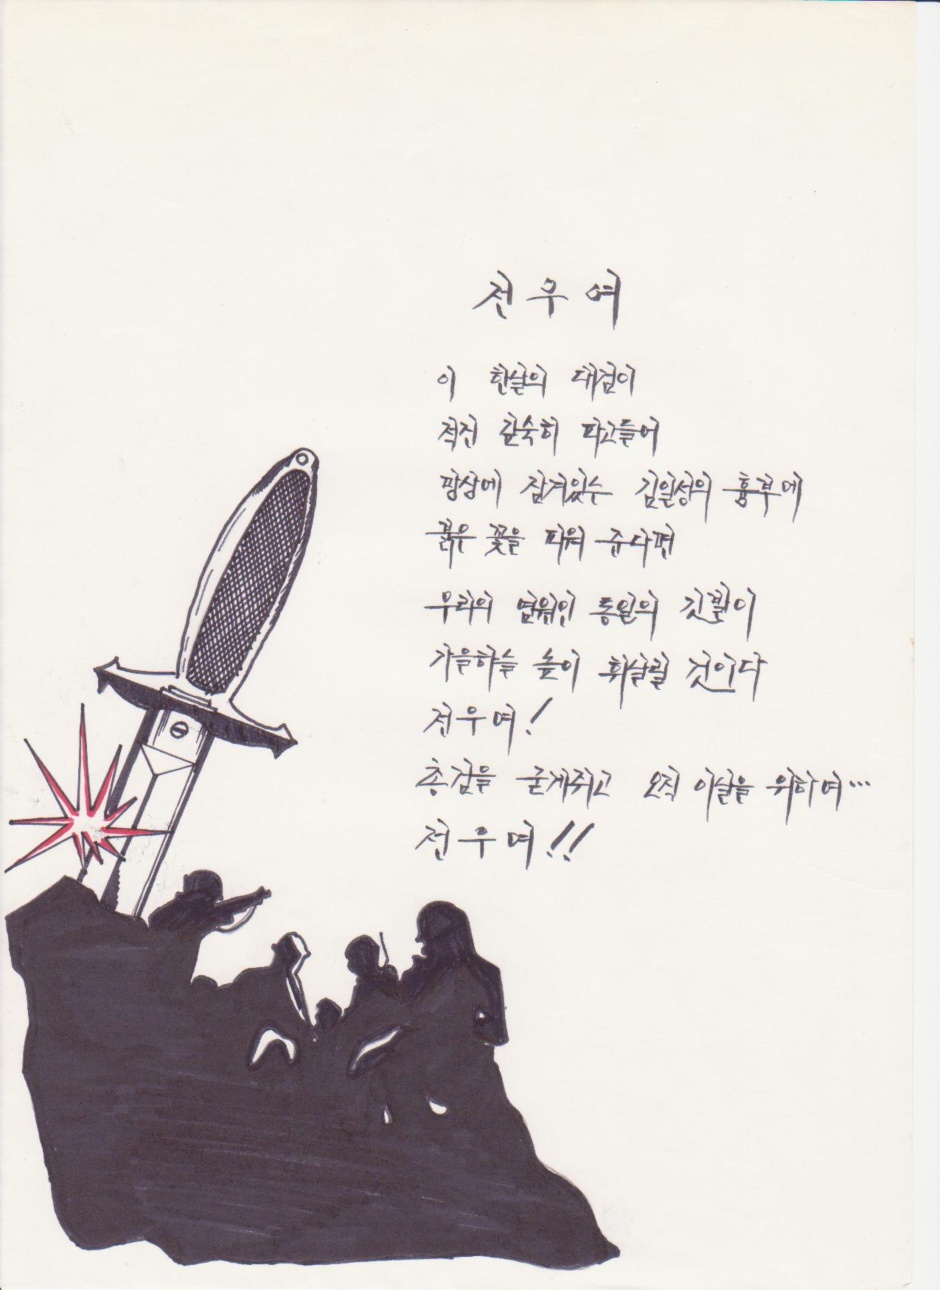 전우여
이 한날의 대검이
적진 깊숙히 파고들어
망상에 잠겨있는 김일성의 흉부에
붉은 꽃을 피워 준다면
우리의 염원인 통일의 깃발이
가을하늘 높이 휘날릴 것이다
전우여!
총검을 굳게쥐고 오직 이날을 위하여...
전우여!!